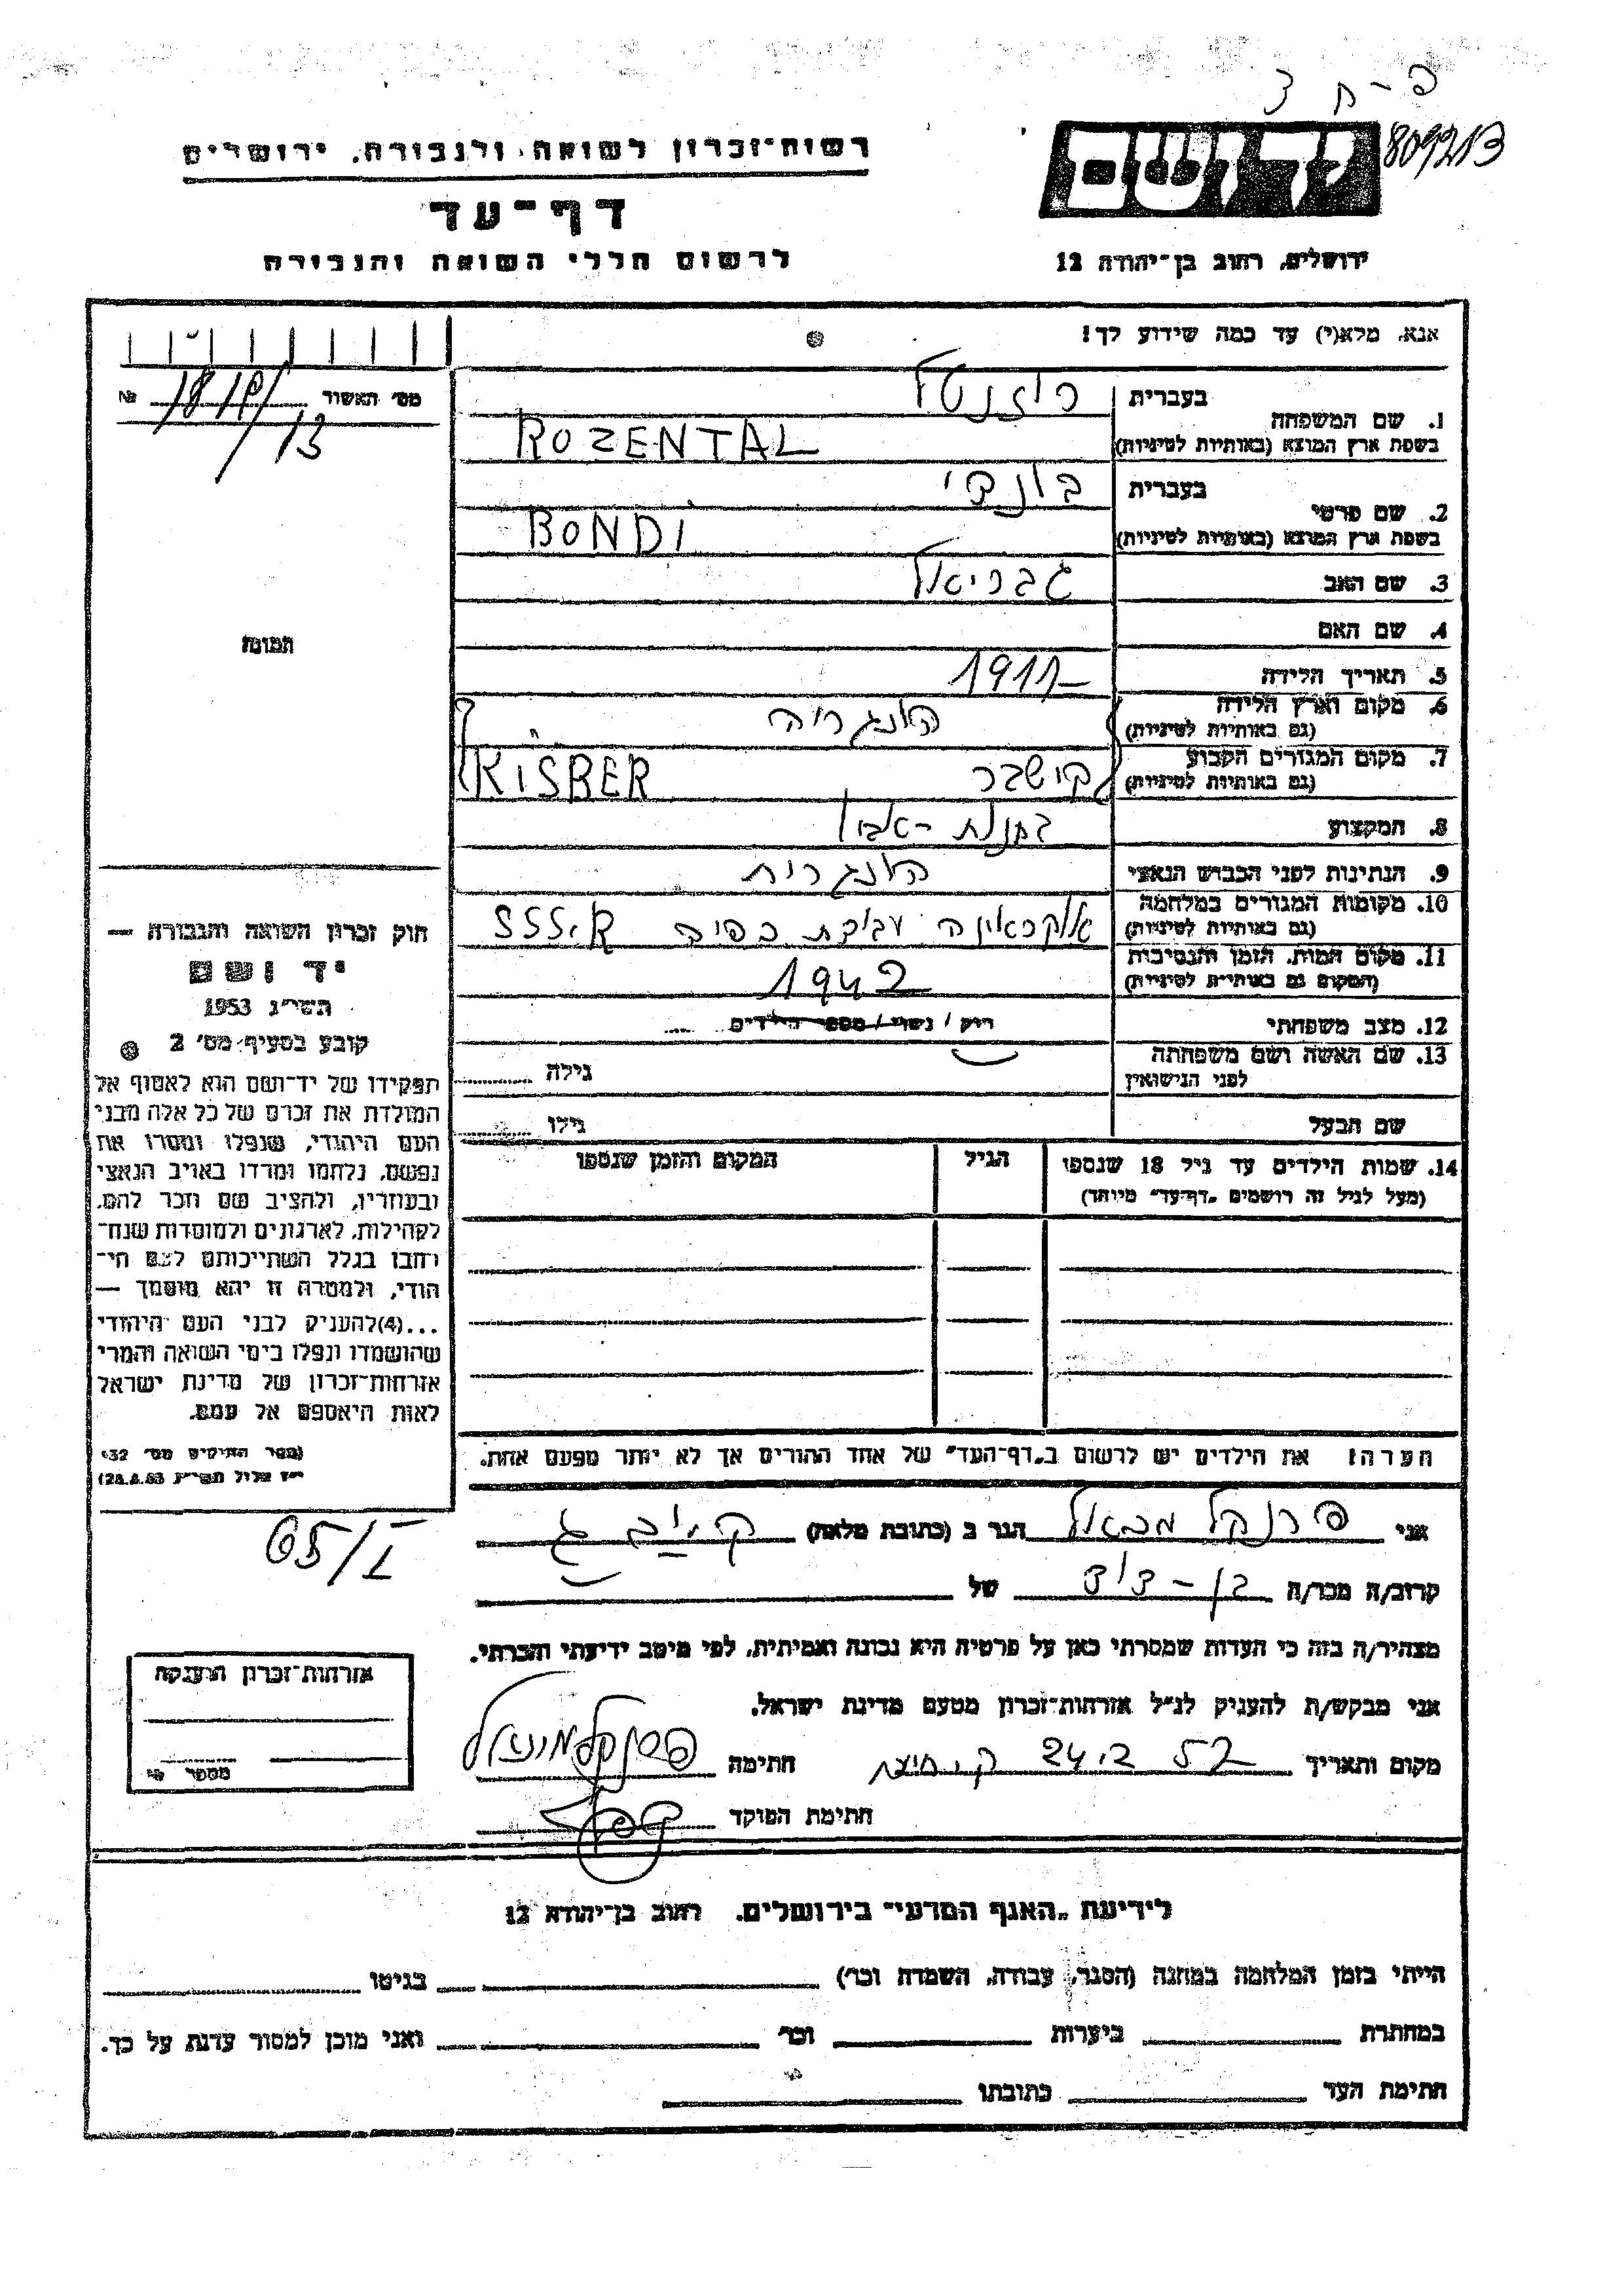 פ-ח צ
809213
יד ושם
רשות-זכרון לשואה ולגבורה, ירושלים
דף-עד
לרשום חללי השואה והגבורה
ירושלים, רחוב בן-יהודה 12
אנא, מלא(י) עד כמה שידוע לך!
1. שם המשפחה
בעברית רוזנטל
בשפת ארץ המוצא (באותיות לטיניות) ROZENTAL
2. שם פרטי
בעברית בונדי
בשפת ארץ המוצא (באותיות לטיניות) BONDI
3. שם האב גבריאל
4. שם האם
5. תאריך הלידה 1911
6. מקום וארץ הלידה הונגריה
(גם באותיות לטיניות)
7. מקום המגורים הקבוע קישבר KISBER
(גם באותיות לטיניות)
8. המקצוע
9. הנתינות לפני הכבוש הנאצי הונגרית
10. מקומות המגורים במלחמה
(גם באותיות לטיניות) אוקראינה עבודת כפיה
11. מקום המות, הזמן והנסיבות
(המקום גם באותיות לטיניות) 1942
12. מצב משפחתי רוק / נשוי / מספר הילדים
13. שם האשה ושם משפחתה
לפני הנישואין גילה
שם הבעל גילו
14. שמות הילדים עד גיל 18 שנספו הגיל המקום והזמן שנספו
(מעל לגיל זה רושמים "דף-עד" מיוחד)
הערה: את הילדים יש לרשום ב"דף-העד" של אחד ההורים אך לא יותר מפעם אחת.
מס' האשור №
13
תמונה
חוק זכרון השואה והגבורה —
יד ושם
תשי"ג 1953
קובע בסעיף מס' 2
תפקידו של יד-ושם הוא לאסוף אל
המולדת את זכרם של כל אלה מבני
העם היהודי, שנפלו ומסרו את
נפשם, נלחמו ומרדו באויב הנאצי
ובעוזריו, ולהציב שם וזכר להם,
לקהילות, לארגונים ולמוסדות שנח-
רחבו בגלל השתייכותם לעם הי-
הודי, ולמטרה זו יהא מוסמך —
...(4) להעניק לבני העם היהודי
שהושמדו ונפלו בימי השואה והמרי
אזרחות-זכרון של מדינת ישראל
לאות היאספם אל עמם.
(ספר החוקים מס' 132
י"ז אלול תשי"ג 28.8.53)
65/I
אני פרנקל הגר ב (כתובת מלאה)
קרוב/ה מכר/ה בן-דוד של
מצהיר/ה בזה כי העדות שמסרתי כאן על פרטיה היא נכונה ואמיתית, לפי מיטב ידיעתי והכרתי.
אני מבקש/ת להעניק לנ"ל אזרחות-זכרון מטעם מדינת ישראל.
מקום ותאריך חתימה
חתימת הפוקד
אזרחות-זכרון הוענקה
מספר
לידיעת "האגף המדעי" בירושלים, רחוב בן-יהודה 12
הייתי בזמן המלחמה במחנה (הסגר, עבודה, השמדה וכו') בגיטו
במחתרת ביערות וכו' ואני מוכן למסור עדות על כך.
חתימת העד כתובתו